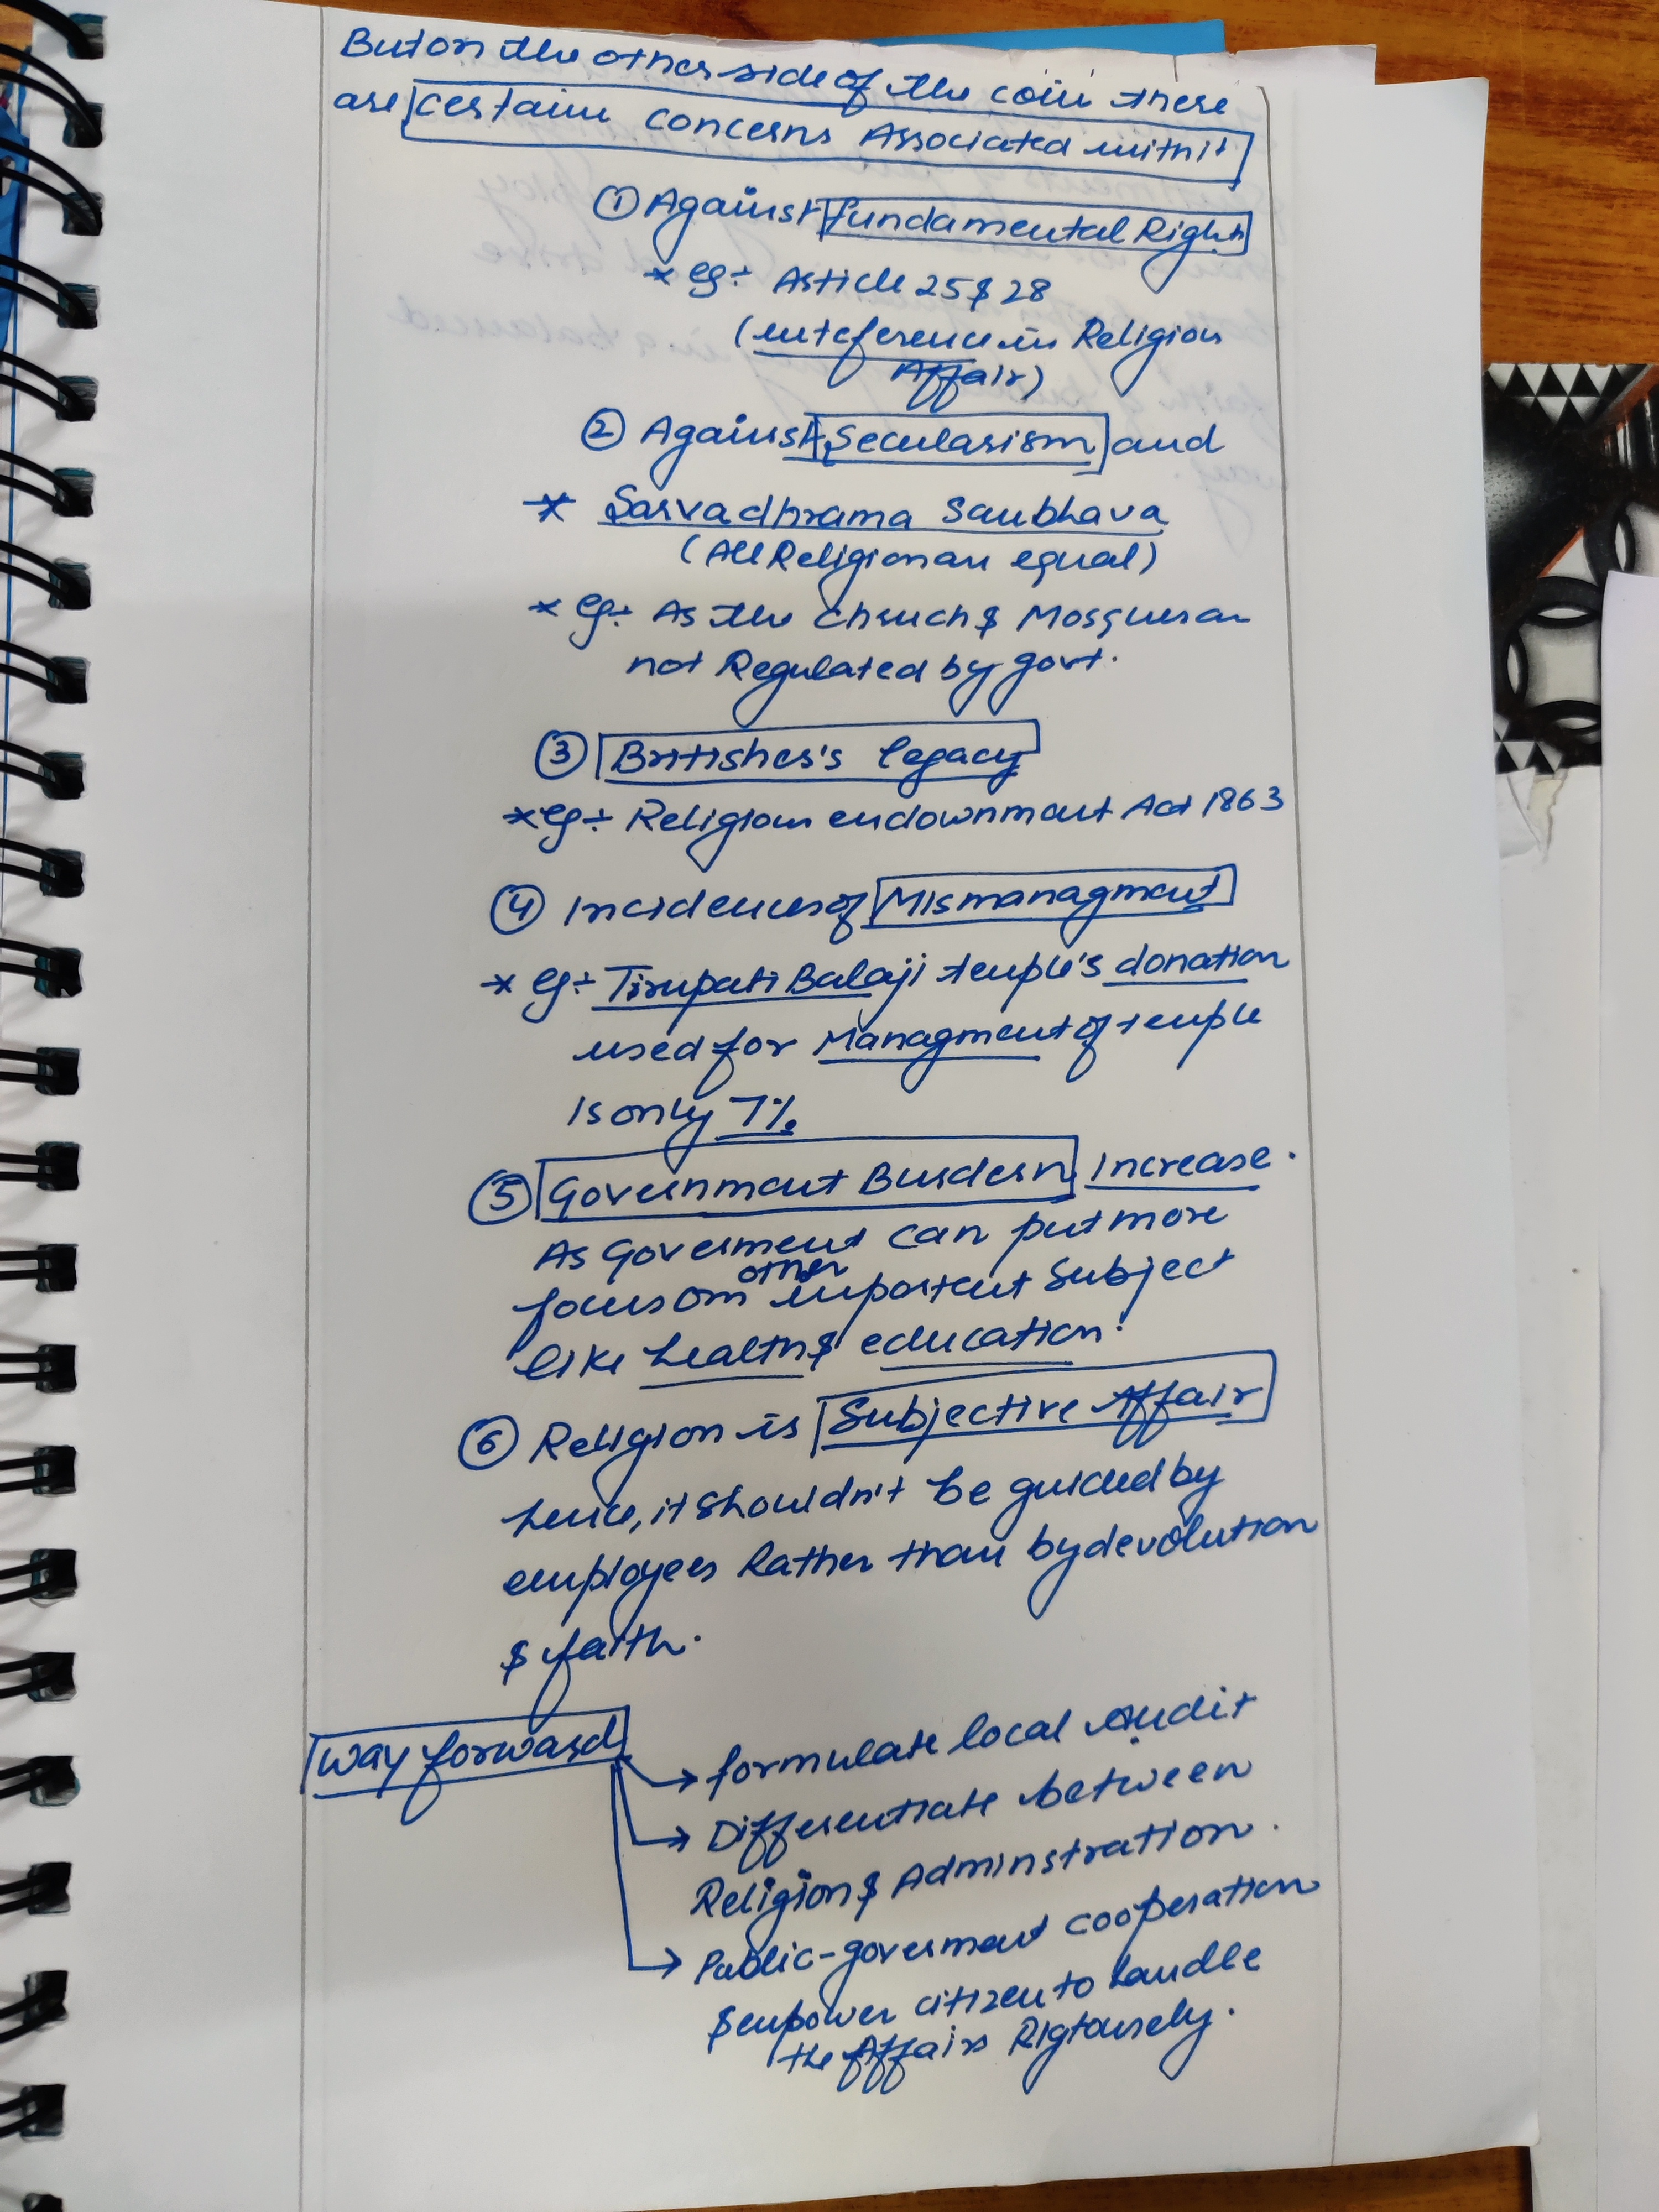 But on the other side of the coin there
are certain concerns Associated with it
① Against fundamental Rights
* eg:- Article 25 & 28
(inteference in Religion
Affair)
② Against Secularism and
* Sarvadhrama Saubhava
(All Religion are equal)
* eg:- As the Chruch & Mosques are
not Regulated by govt.
③ Britishers's legacy
* eg:- Religious endownment Act 1863
④ Incidences of Mismanagment
* eg:- Tirupati Balaji temple's donation
used for Managment of temple
is only 7%
⑤ Government Burdern Increase.
As Goverment can put more
focus on other important Subject
like health & education.
⑥ Religion is Subjective Affair
hence, it shouldn't be guided by
employees Rather than by devolution
& faith.
Way forward
→ formulate local Audit
→ Differentiate between
Religion & Adminstration.
→ Public-goverment cooperation
& empower citizen to handle
the Affairs Rigtousely.